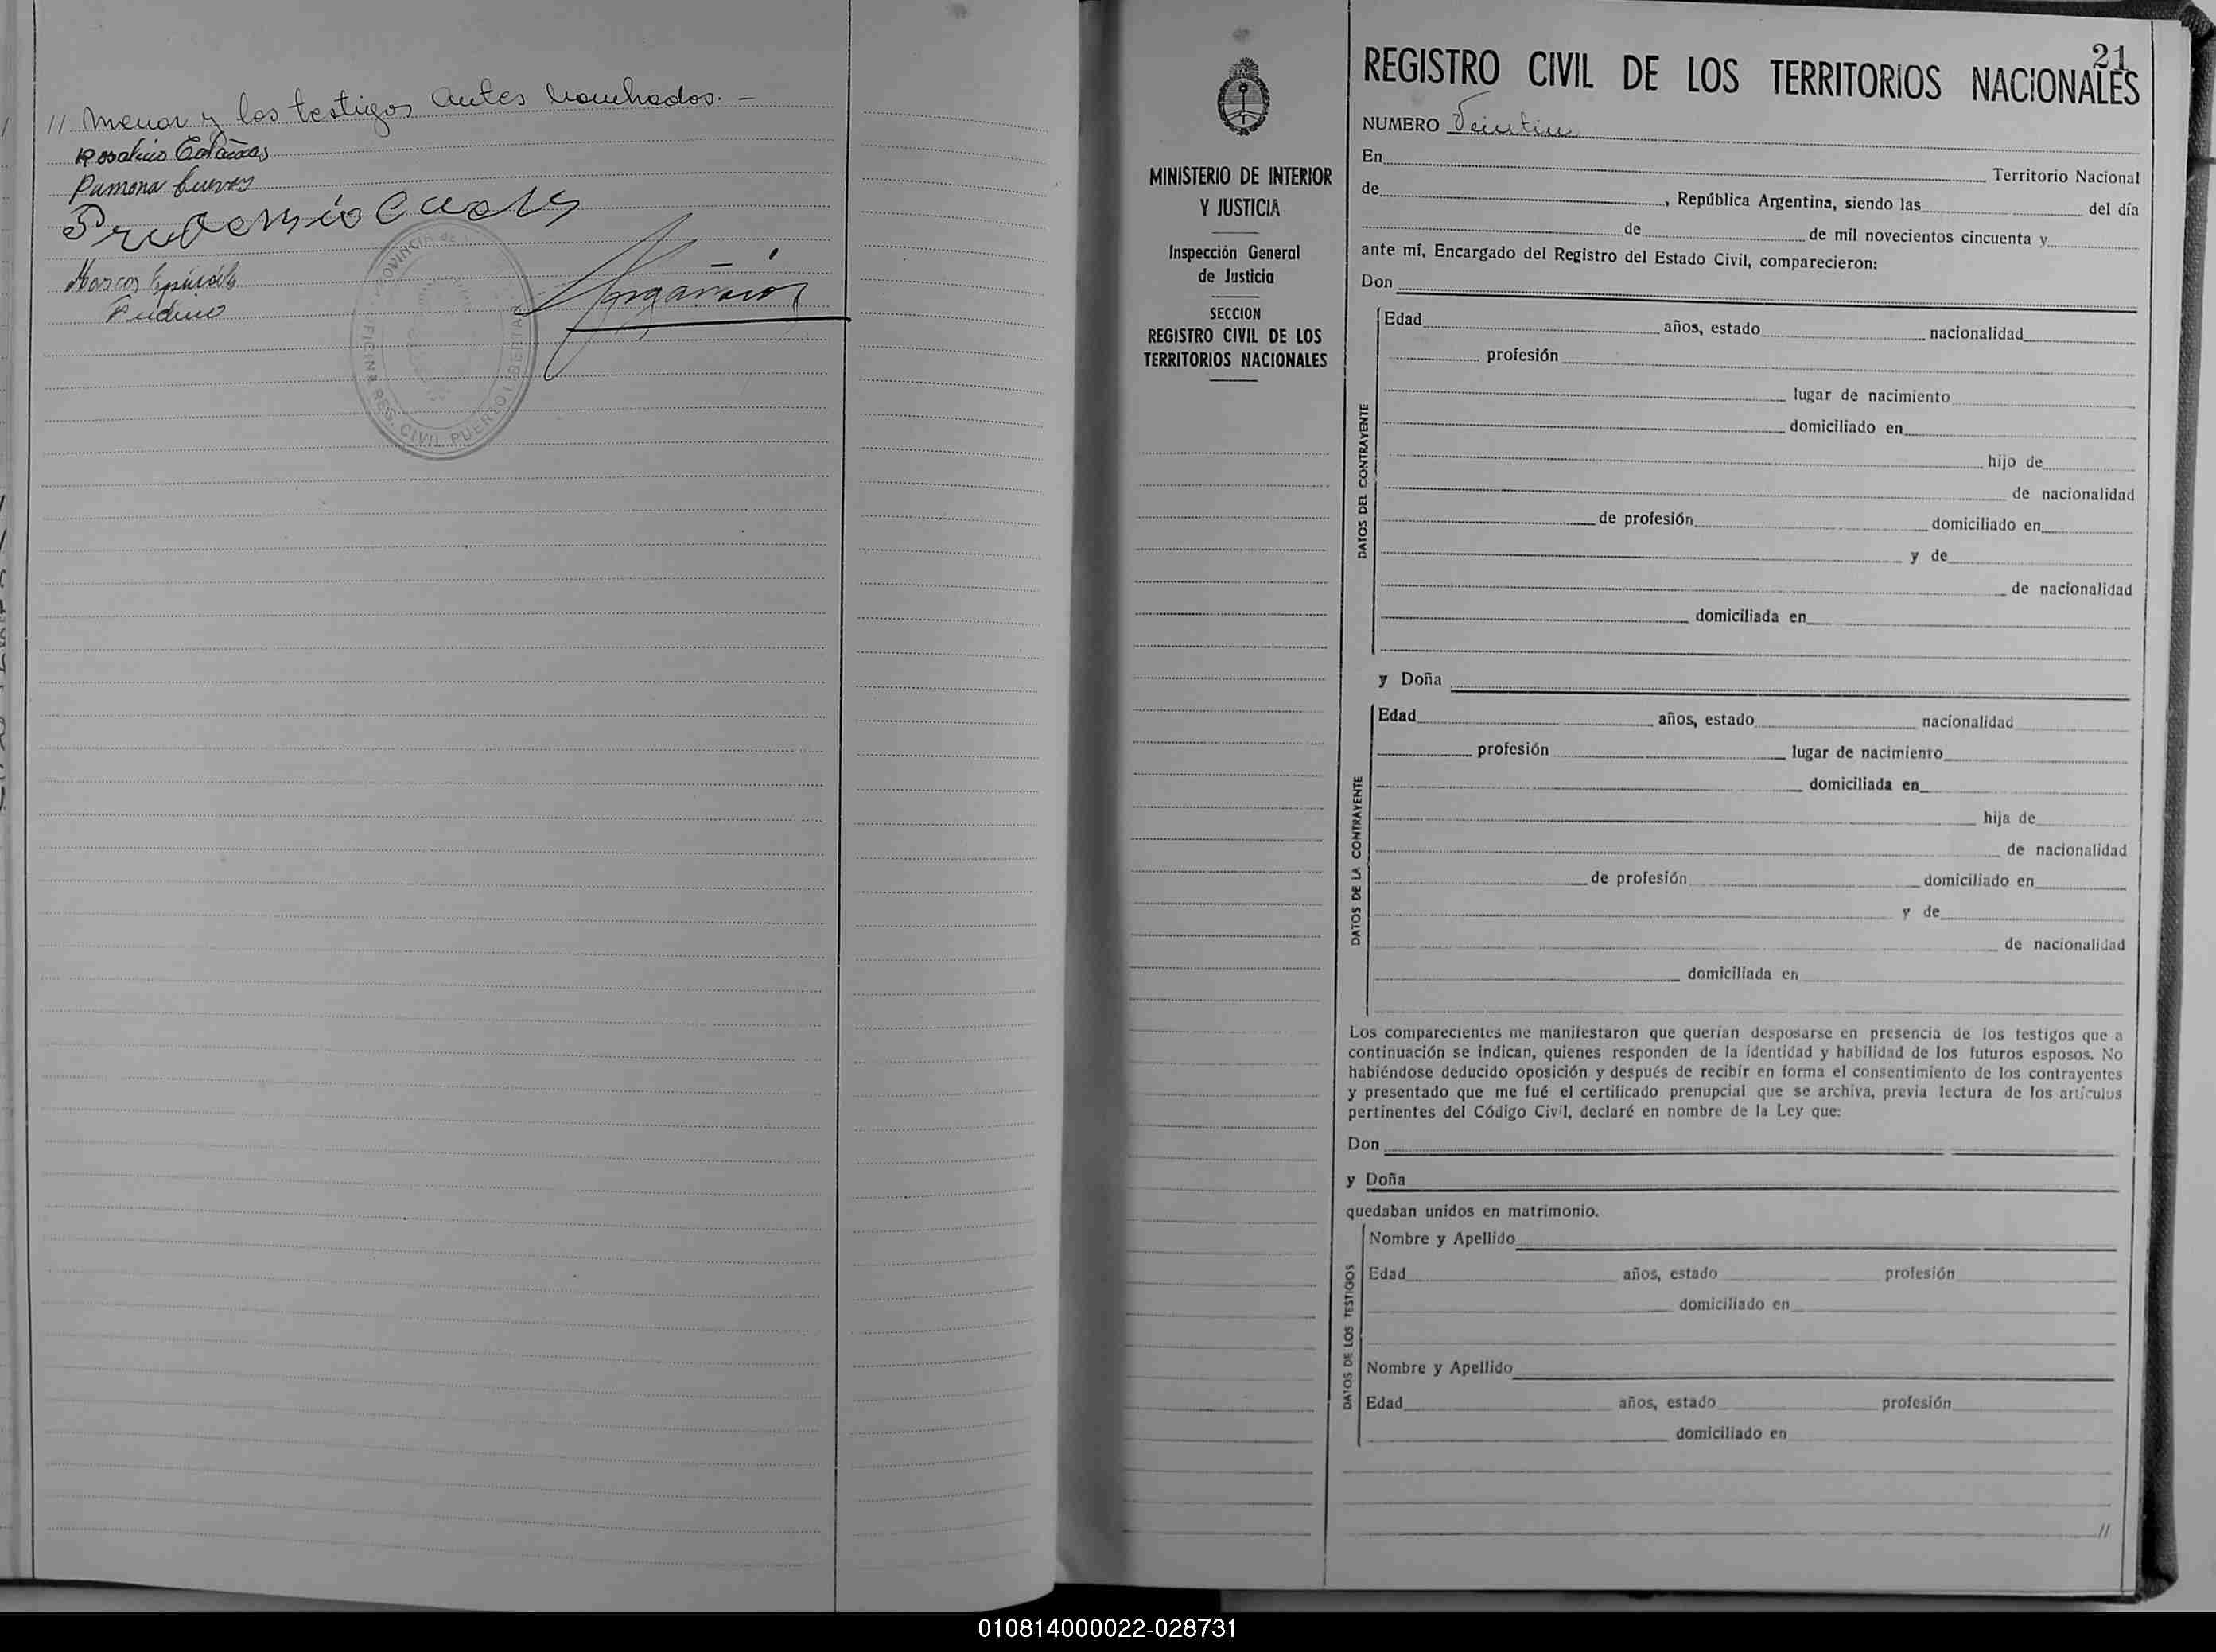 // menor y los testigos antes nombrados. -
Ramona Cuevas
Marcos
PROVINCIA de
OFICINA REG. CIVIL PUERTO LIBERTAD
21
REGISTRO CIVIL DE LOS TERRITORIOS NACIONALES
NUMERO Veintiuno
En Territorio Nacional
de , República Argentina, siendo las del día
de de mil novecientos cincuenta y
ante mí, Encargado del Registro del Estado Civil, comparecieron:
Don
MINISTERIO DE INTERIOR
Y JUSTICIA
Inspección General
de Justicia
SECCION
REGISTRO CIVIL DE LOS
TERRITORIOS NACIONALES
DATOS DEL CONTRAYENTE
Edad años, estado nacionalidad
profesión
lugar de nacimiento
domiciliado en
hijo de
de nacionalidad
de profesión domiciliado en
y de
de nacionalidad
domiciliada en
y Doña
DATOS DE LA CONTRAYENTE
Edad años, estado nacionalidad
profesión lugar de nacimiento
domiciliada en
hija de
de nacionalidad
de profesión domiciliado en
y de
de nacionalidad
domiciliada en
Los comparecientes me manifestaron que querían desposarse en presencia de los testigos que a
continuación se indican, quienes responden de la identidad y habilidad de los futuros esposos. No
habiéndose deducido oposición y después de recibir en forma el consentimiento de los contrayentes
y presentado que me fué el certificado prenupcial que se archiva, previa lectura de los artículos
pertinentes del Código Civil, declaré en nombre de la Ley que:
Don
y Doña
quedaban unidos en matrimonio.
DATOS DE LOS TESTIGOS
Nombre y Apellido
Edad años, estado profesión
domiciliado en
Nombre y Apellido
Edad años, estado profesión
domiciliado en
//
010814000022-028731